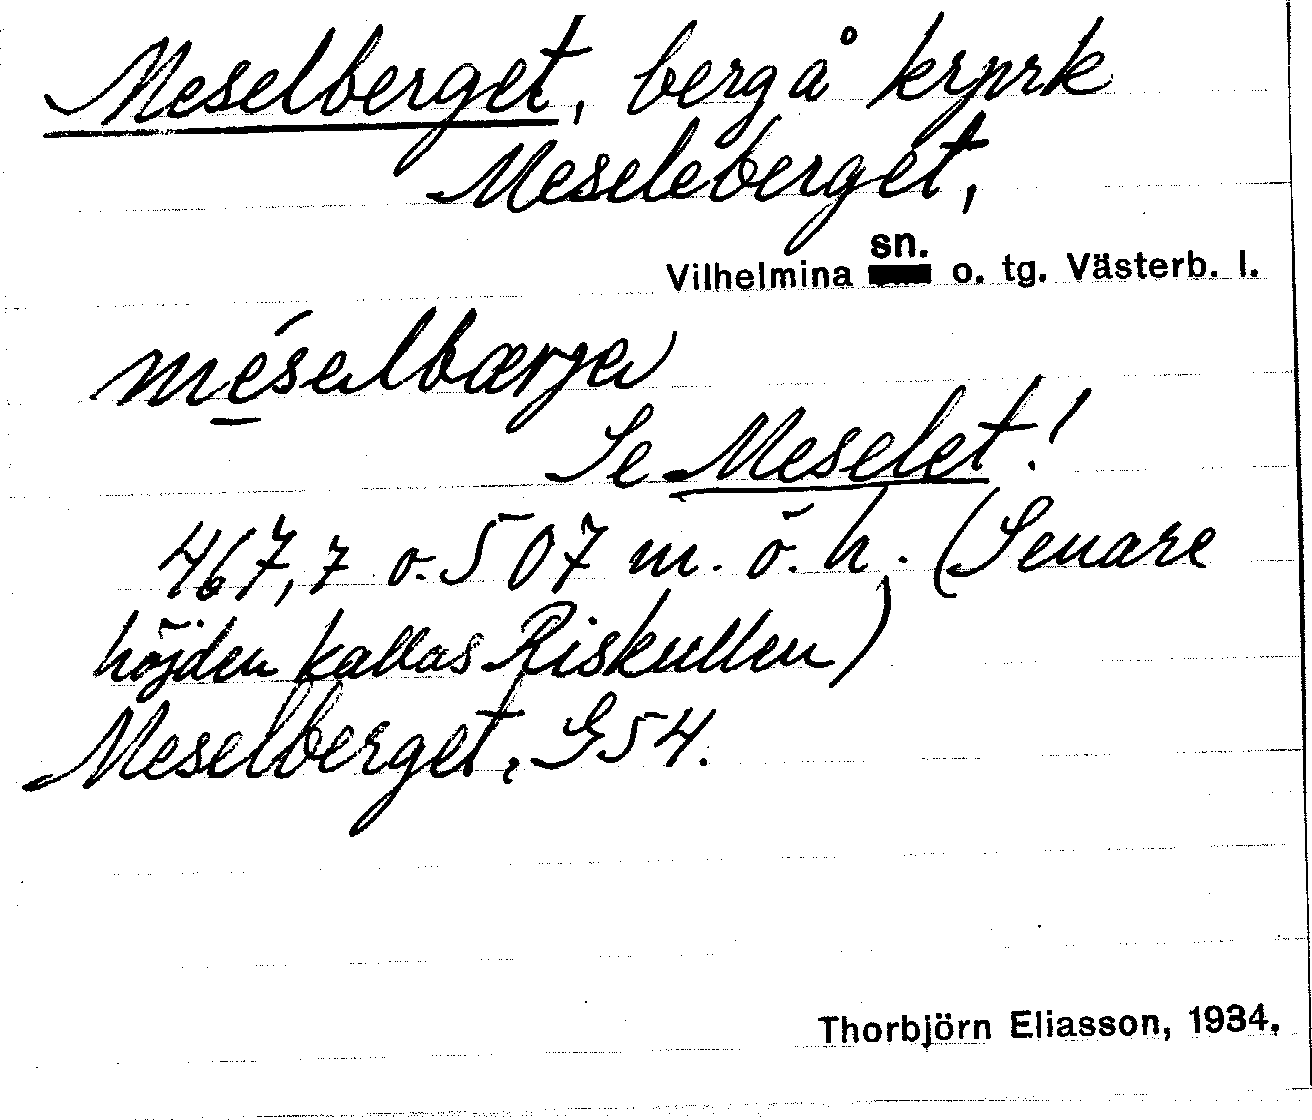 Meselberget, berg å krprk
Meseleberget,
Vilhelmina sn. o. tg. Västerb. l.
méselbærja
Se Meselet!
467,7 o. 507 m. ö. h. (Senare
höjden kallas Riskullen)
Meselberget, G54.
Thorbjörn Eliasson, 1934.